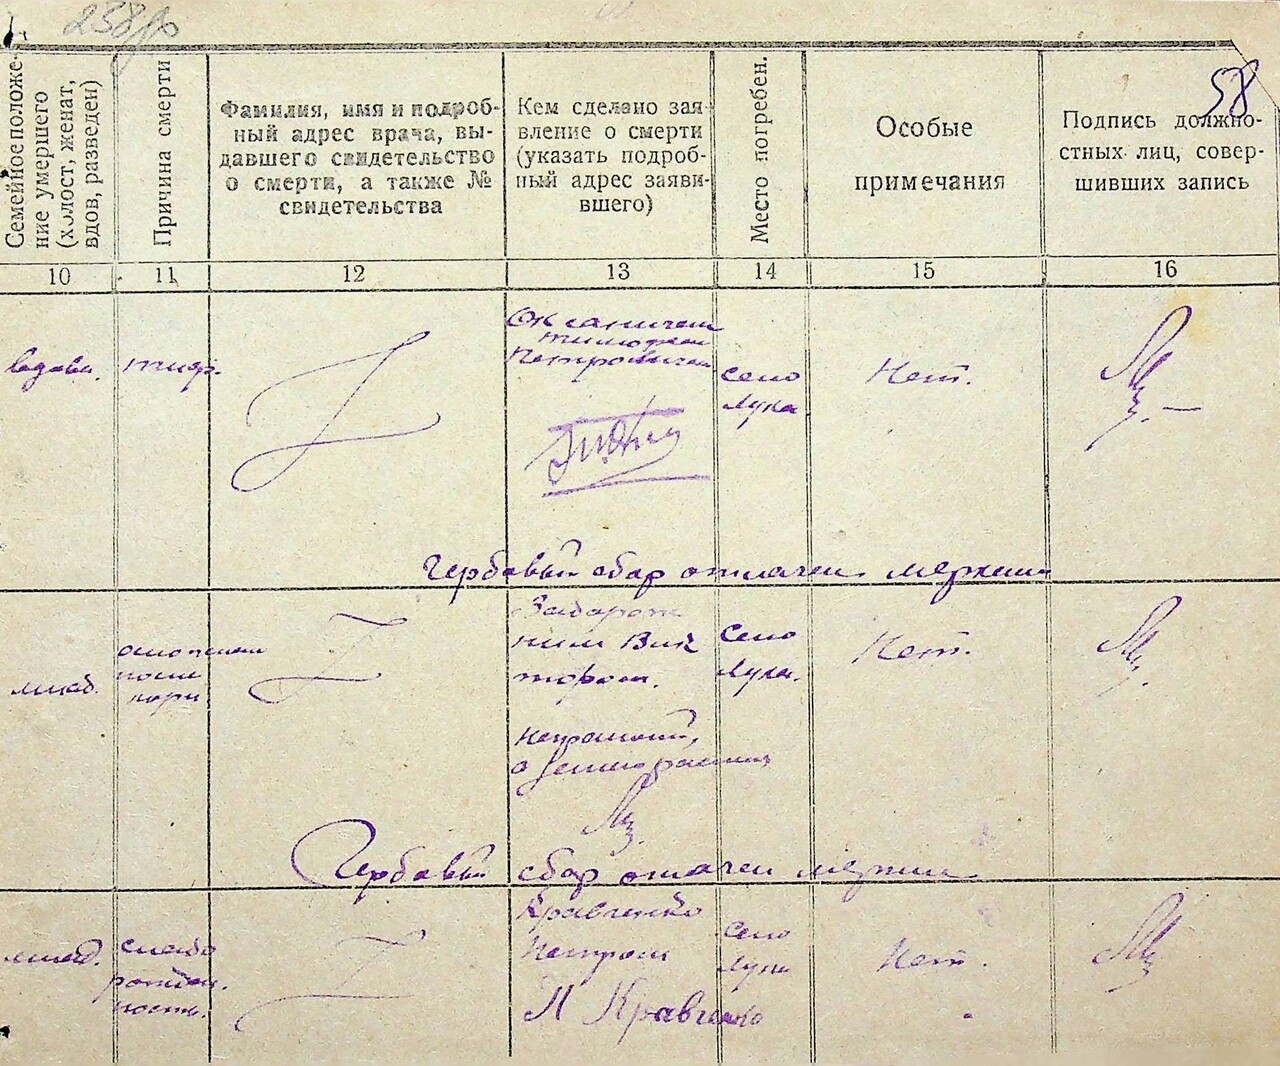 238
58
Семейное положе-
ние умершего
(холост, женат,
вдов, разведен)
Причина смерти
Фамилия, имя и подроб-
ный адрес врача, вы-
давшего свидетельство
о смерти, а также №
свидетельства
Кем сделано зая-
вление о смерти
(указать подроб-
ный адрес заяви-
вшего)
Место погребен.
Особые
примечания
Подпись должно-
стных лиц, совер-
шивших запись
10 11 12 13 14 15 16
вдова.
тиф.
Оксаничем
Тимофеем
Петровичем
село
Лука
Нет.
Гербовый сбор оплачен марками
млад.
после
кори
Забарож
ним Вик
тором.
село
Лука.
Нет.
Неграмотний,
а
Гербовый сбор оплачен
млад.
слабо
рожден.
ность.
Кравченко
Петром
П Кравченко
село
Луки
Нет.